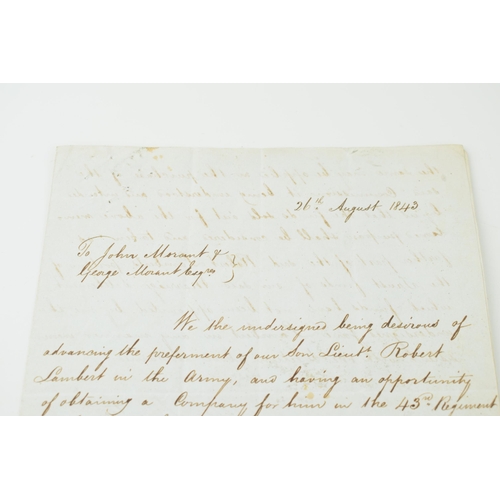 26th August 1843
To John Morant &
George Morant Esqrs
We the undersigned being desirous of
advancing the preferment of our Son Lieutt. Robert
Lambert in the Army, and having an opportunity
of obtaining a Company for him in the 43rd Regiment